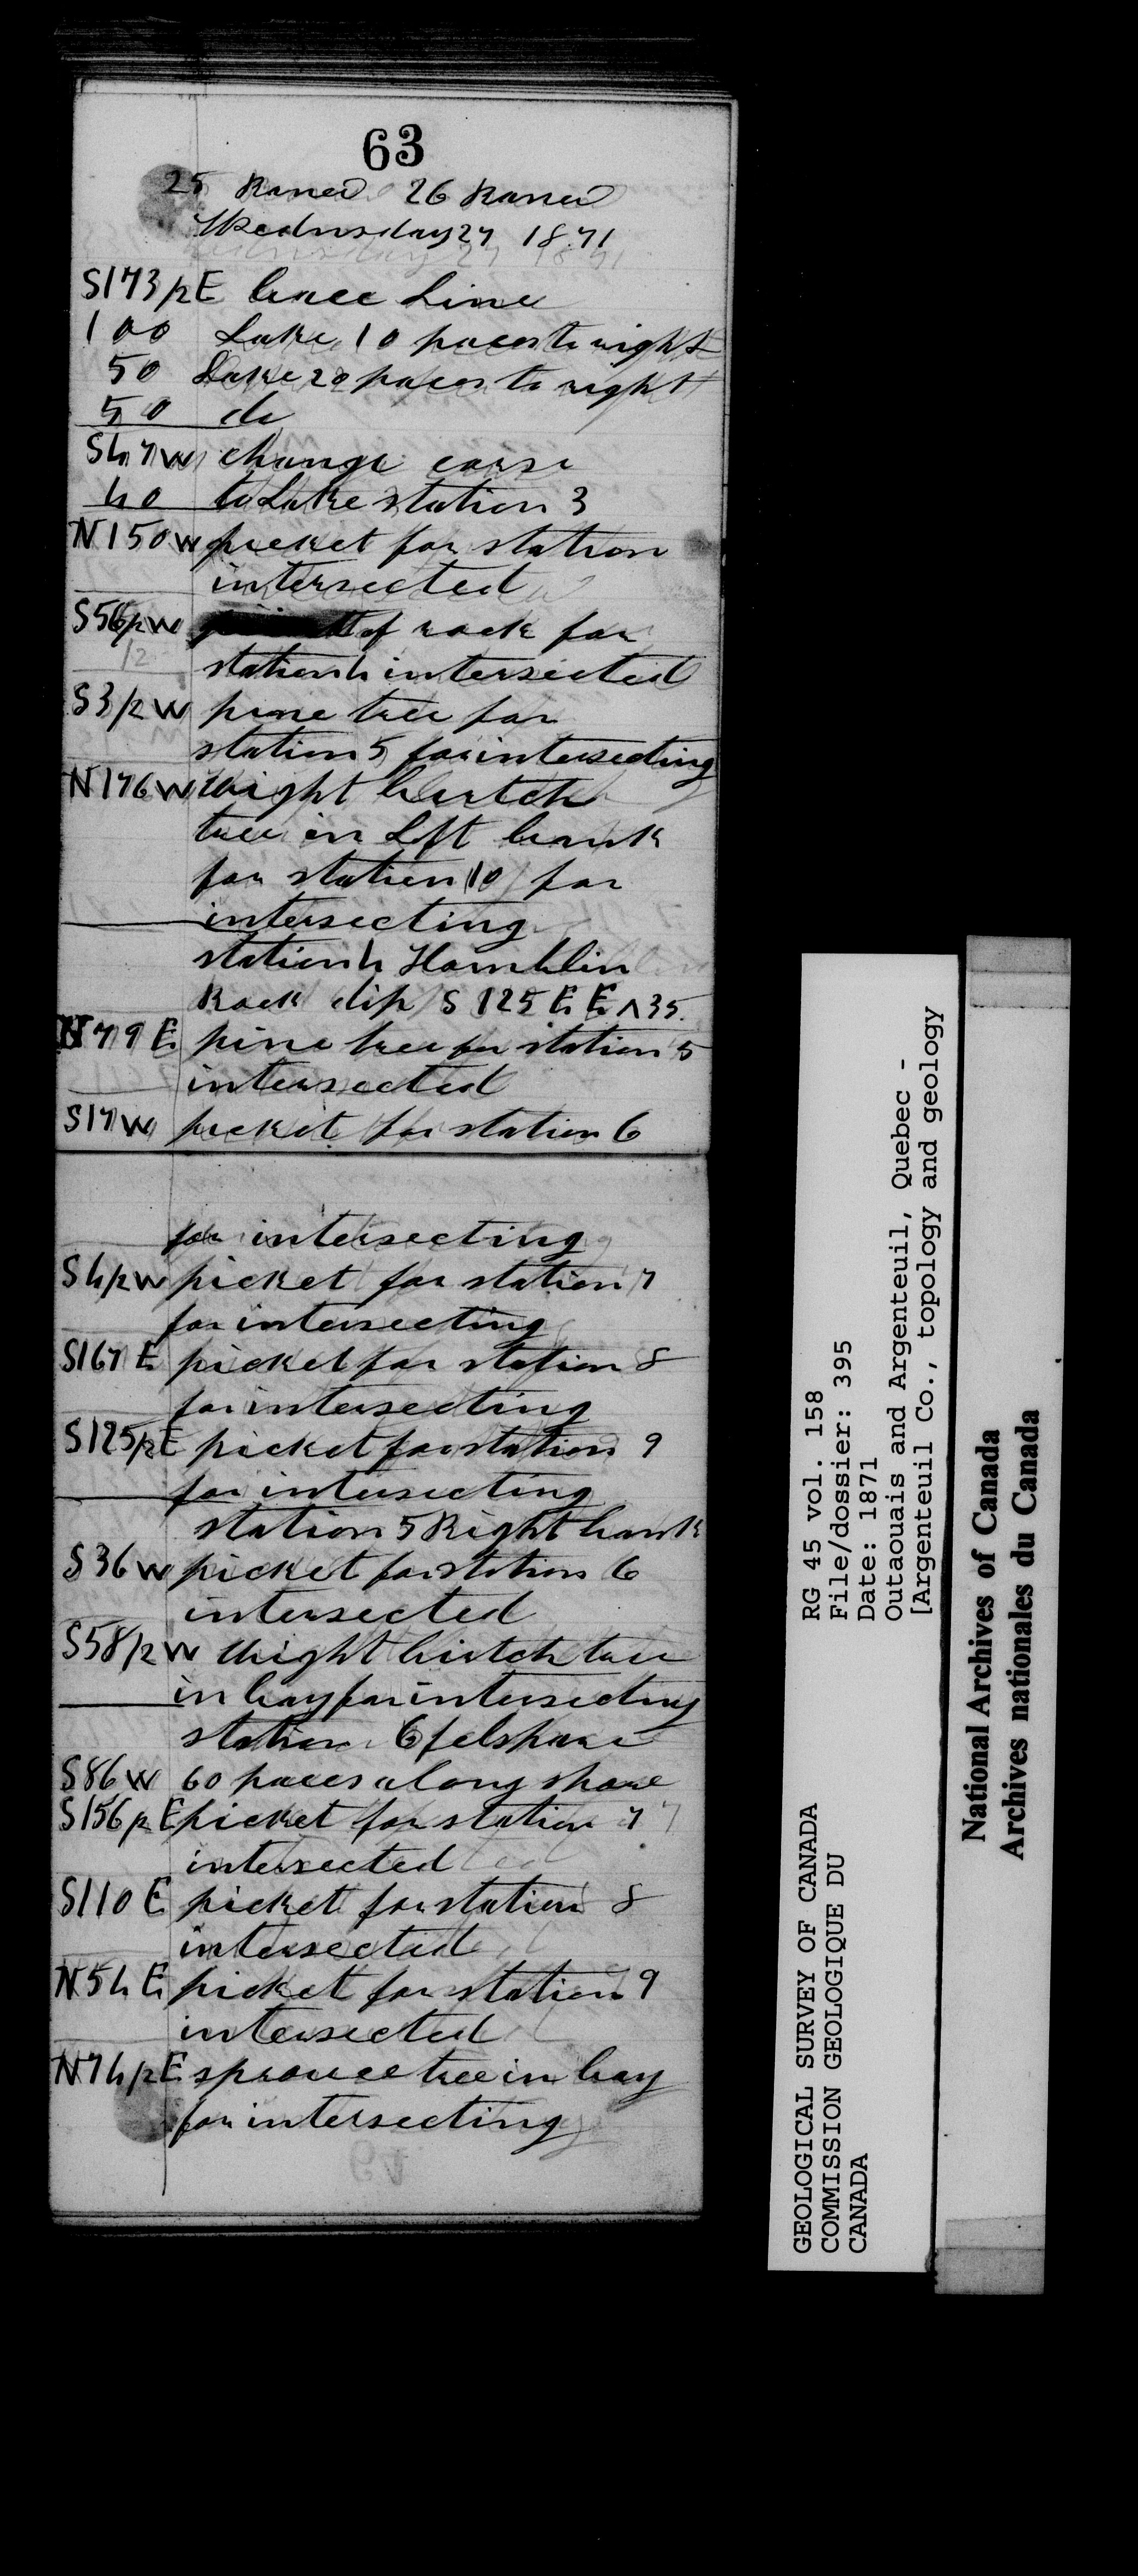 63
25 Raned 26 Raned
Wednsday 27 1871
S173/2E bace Line
100 Lake 10 paces to right
50 Lake 20 paces to right
50 do
S47W change corse
40 to Lake station 3
N150W picket for station
intersected
S56/2W of rock for
12
station 4 intersected
S3/2W pine tree for
station 5 for intersecting
N176W Wight birtch
tree in Lft bank
for station 10 for
intersecting
station 4 Hornblin
Rock dip S 125 E E ^35.
N79E pine tree for station 5
intersected
S17W picket for station 6
for intersecting
S4/2W picket for station 7
for intersecting
S167E picket for station 8
for intersecting
S125/2E picket for station 9
for intersecting
station 5 Right bank
S36W picket for station 6
intersected
S58/2W Wight birtch tree
in bay for intersecting
station 6 felspare
S86W 60 paces along shore
S156/2E picket for station 7 7
intersected
S110E picket for station 8
intersected
N54E picket for station 9
intersected
N74/2E sprouce tree in bay
for intersecting
GEOLOGICAL SURVEY OF CANADA
COMMISSION GEOLOGIQUE DU
CANADA
RG 45 vol. 158
File/dossier: 395
Date: 1871
Outaouais and Argenteuil, Quebec -
[Argenteuil Co., topology and geology
National Archives of Canada
Archives nationales du Canada